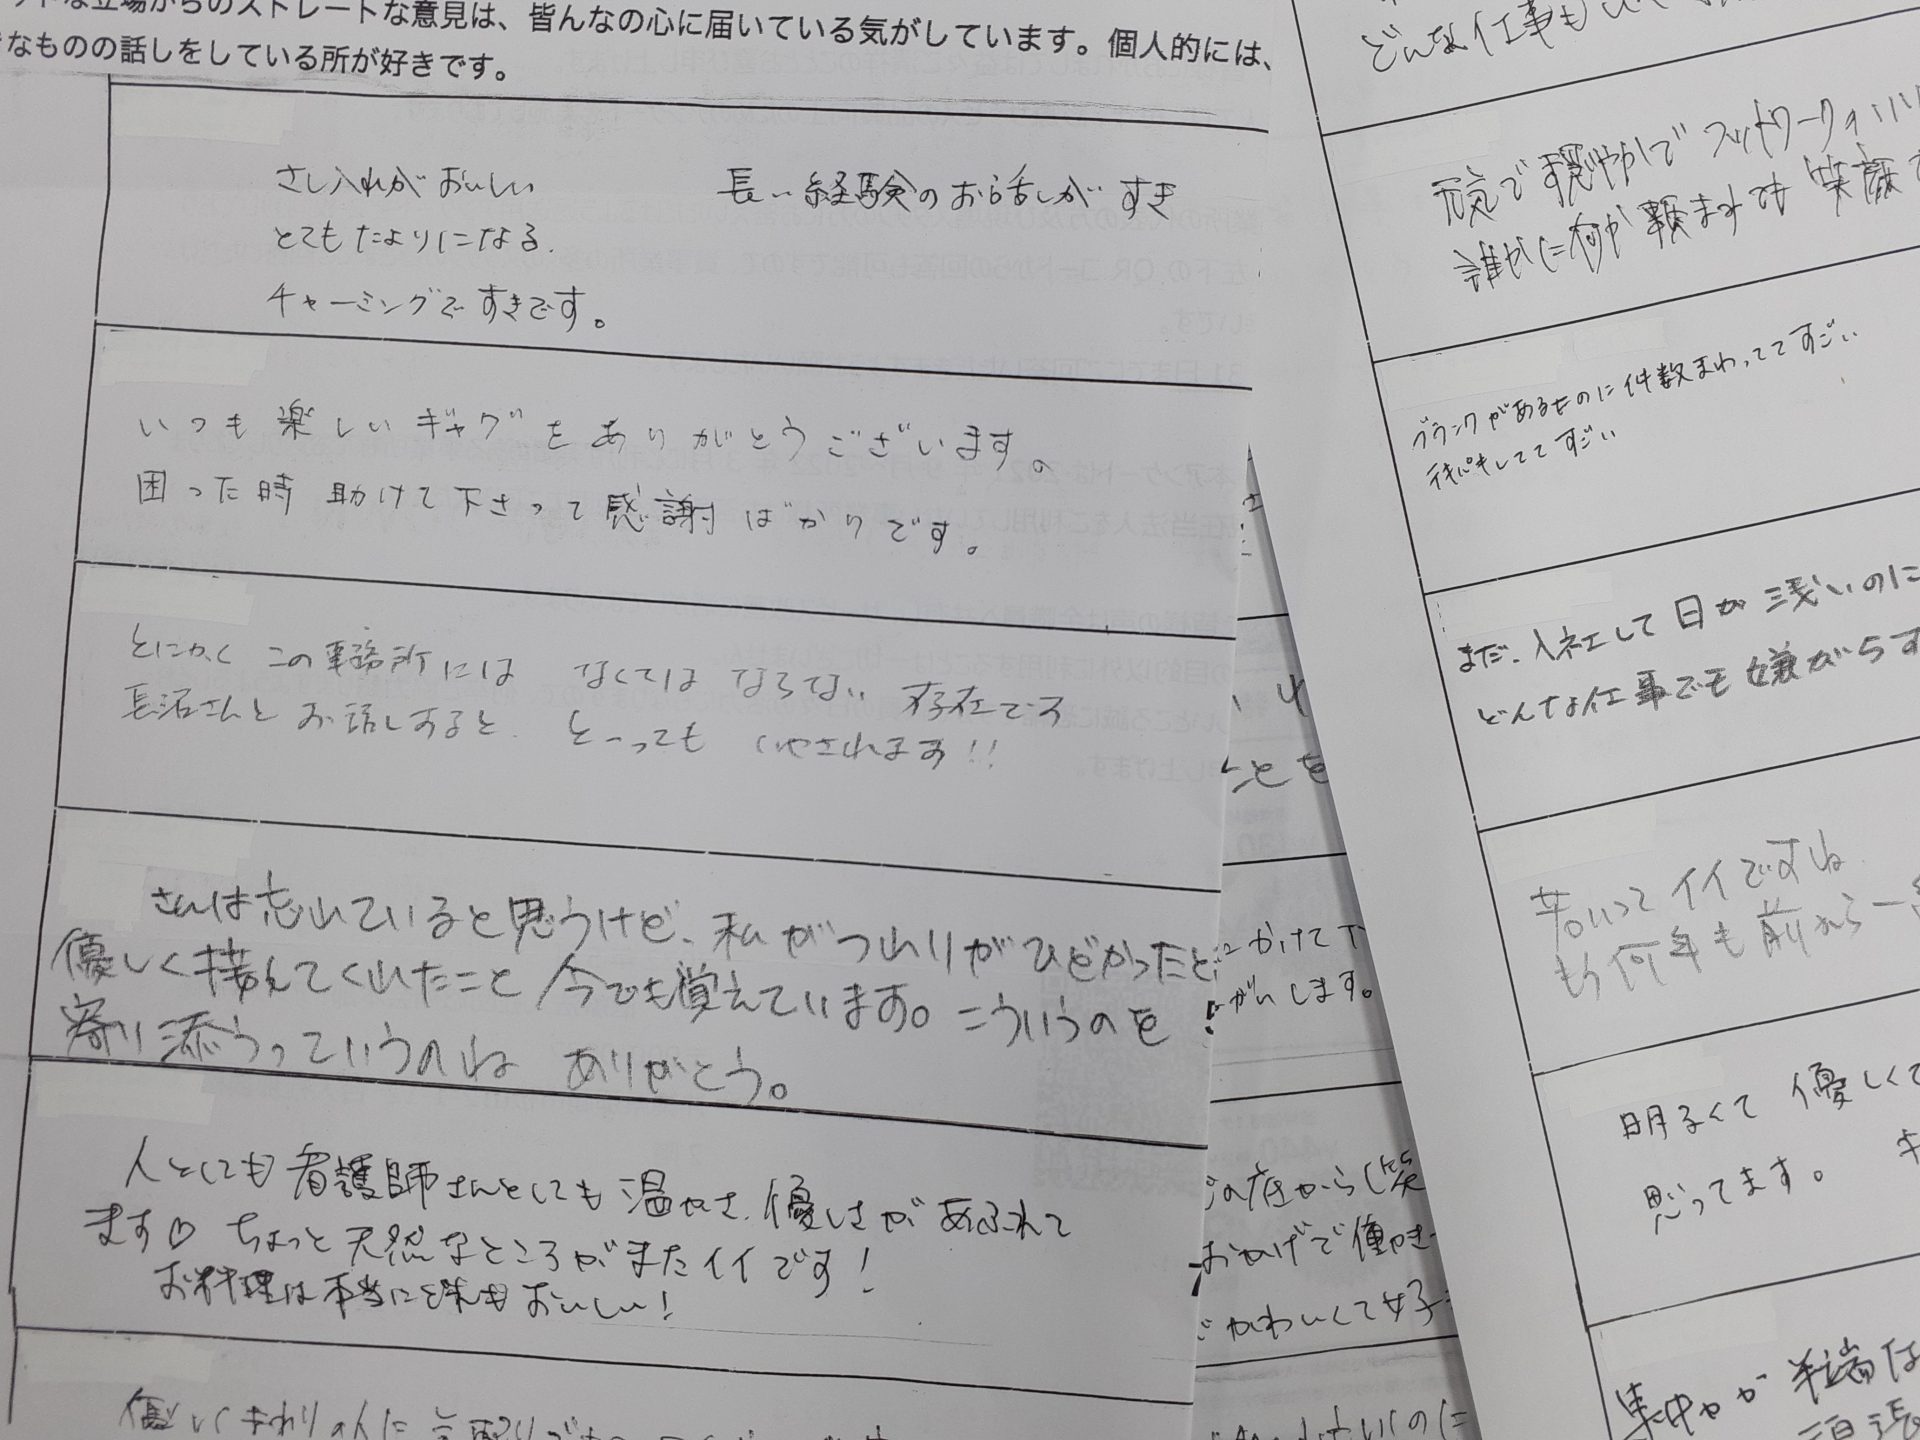 な立場からのストレートな意見は、皆んなの心に届いている気がしています。個人的には、
なものの話しをしている所が好きです。
さし入れがおいしい
長い経験のお話しがすき
とてもたよりになる.
チャーミングですきです。
いつも楽しいギャグをありがとうございます。
困った時助けて下さって感謝ばかりです。
とにかくこの事務所にはなくてはならない存在です
長沼さんとお話しすると、とーってもいやされます!!
さんは忘れていると思うけど、私がつわりがひどかったと
優しく構えてくれたこと今でも覚えています。こういうのを
寄り添うっていうのね ありがとう。
人としても看護師さんとしても温かさ、優しさがあふれて
ます♡ ちょっと天然なところがまたイイです!
お料理は本当においしい!
優しくまわりの人に
ことを
かけて下
がいします。
の底から(笑
おかげで働き
かわいくて女子
どんな仕事も
元気で穏やかでフットワークがいい
誰かに何か頼まれても笑顔
ブランクがあるものに件数まわっててすごい
すごい
まだ、入社して日が浅いのに
どんな仕事でも嫌がらず
若いってイイですね
もう何年も前から一
明るくて優しくて
思ってます。
半端